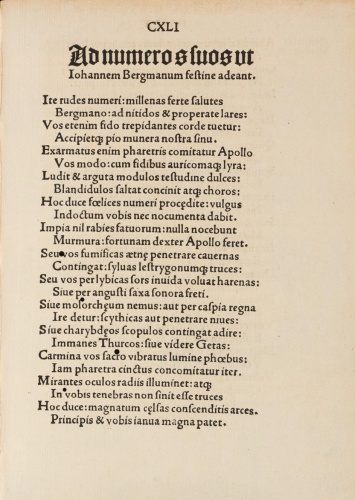 CXLI
Ad numeros suos ut
Iohannem Bergmanum festine adeant.
Ite rudes numeri: millenas ferte salutes
Bergmano: ad nitidos & properate lares:
Vos etenim fido trepidantes corde tuetur:
Accipietq; pio munera nostra sinu.
Exarmatus enim pharetris comitatur Apollo
Vos modo: cum fidibus auricomaq; lyra:
Ludit & arguta modulos testudine dulces:
Blandidulos saltat concinit atq; choros:
Hoc duce fœlices numeri procędite: vulgus
Indoctum vobis nec nocumenta dabit.
Impia nil rabies fatuorum: nulla nocebunt
Murmura: fortunam dexter Apollo feret.
Seu vos fumificas ætnę penetrare cauernas
Contingat: syluas lestrygonumq; truces:
Seu vos per lybicas sors inuida voluat harenas:
Siue per angusti saxa sonora freti.
Siue molorchęum nemus: aut per caspia regna
Ire detur: scythicas aut penetrare niues:
Siue charybdęos scopulos contingat adire:
Immanes Thurcos: siue videre Getas:
Carmina vos sacro vibratus lumine phœbus:
Iam pharetra cinctus concomitatur iter.
Mirantes oculos radiis illuminet: atq;
In vobis tenebras non sinit esse truces
Hoc duce: magnatum cęlsas conscenditis arces.
Principis & vobis ianua magna patet.